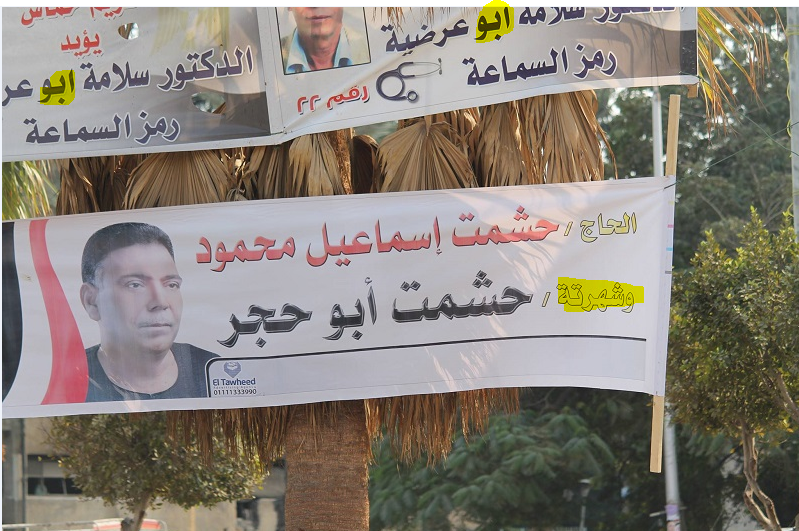 يؤيد
الدكتور سلامة ابو
رمز السماعة
الدكتور سلامة ابو عرضية
رمز السماعة
رقم ٢٢
الحاج / حشمت إسماعيل محمود
وشهرتة / حشمت أبو حجر
El Tawheed
01111333990